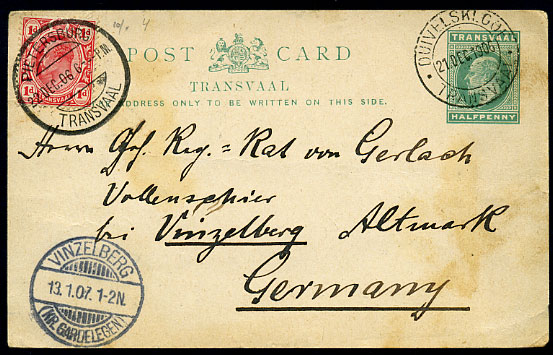 10/. 4
1d 1d
1d TRANSVAAL 1d
PIETERSBURG
22 DEC. 06 P.M.
TRANSVAAL
POST CARD
TRANSVAAL
ADDRESS ONLY TO BE WRITTEN ON THIS SIDE.
TRANSVAAL
HALFPENNY
DUIVELSKLOOF
21 DEC 1906
TRANSVAAL
Herrn Geh. Reg. = Rat von Gerlach
Vollenschier
bei Vinzelberg Altmark
Germany
VINZELBERG
13.1.07. 1-2N.
(KR. GARDELEGEN)